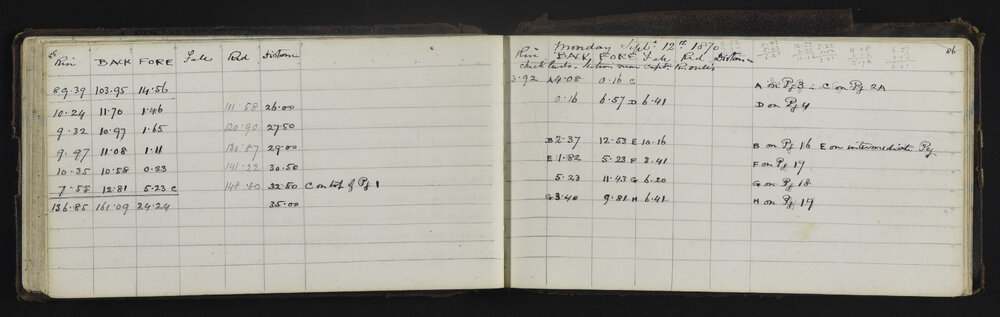 Rise BACK FORE Fall Red Distance
89.39 103.95 14.56
10.24 11.70 1.46 111.58 26.00
9.32 10.97 1.65 120.90 27.50
9.97 11.08 1.11 130.87 29.00
10.35 10.58 0.23 141.22 30.50
7.58 12.81 5.23 C 148.80 32.50 C on top of Pg 1
136.85 161.09 24.24 35.00
Monday Sept. 12th 1870 86
Rise BACK FORE Fall Red Distance
check levels - Section near Capt.
3.92 A 4.08 0.16 C A on Pg 3 - C on Pg 2A
0.16 6.57 D 6.41 D on Pg 4
B 2.37 12.53 E 10.16 B on Pg 16 E on intermediate Peg
E 1.82 5.23 F 3.41 F on Pg 17
5.23 11.43 G 6.20 G on Pg 18
G 3.40 9.81 H 6.41 H on Pg 19